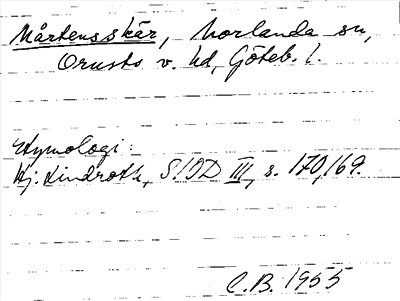 Mårtensskär, Morlanda sn,
Orusts v. hd, Göteb. l.
Etymologi:
Hj. Lindroth, S. I O D III, s. 170, 169.
C.B. 1955